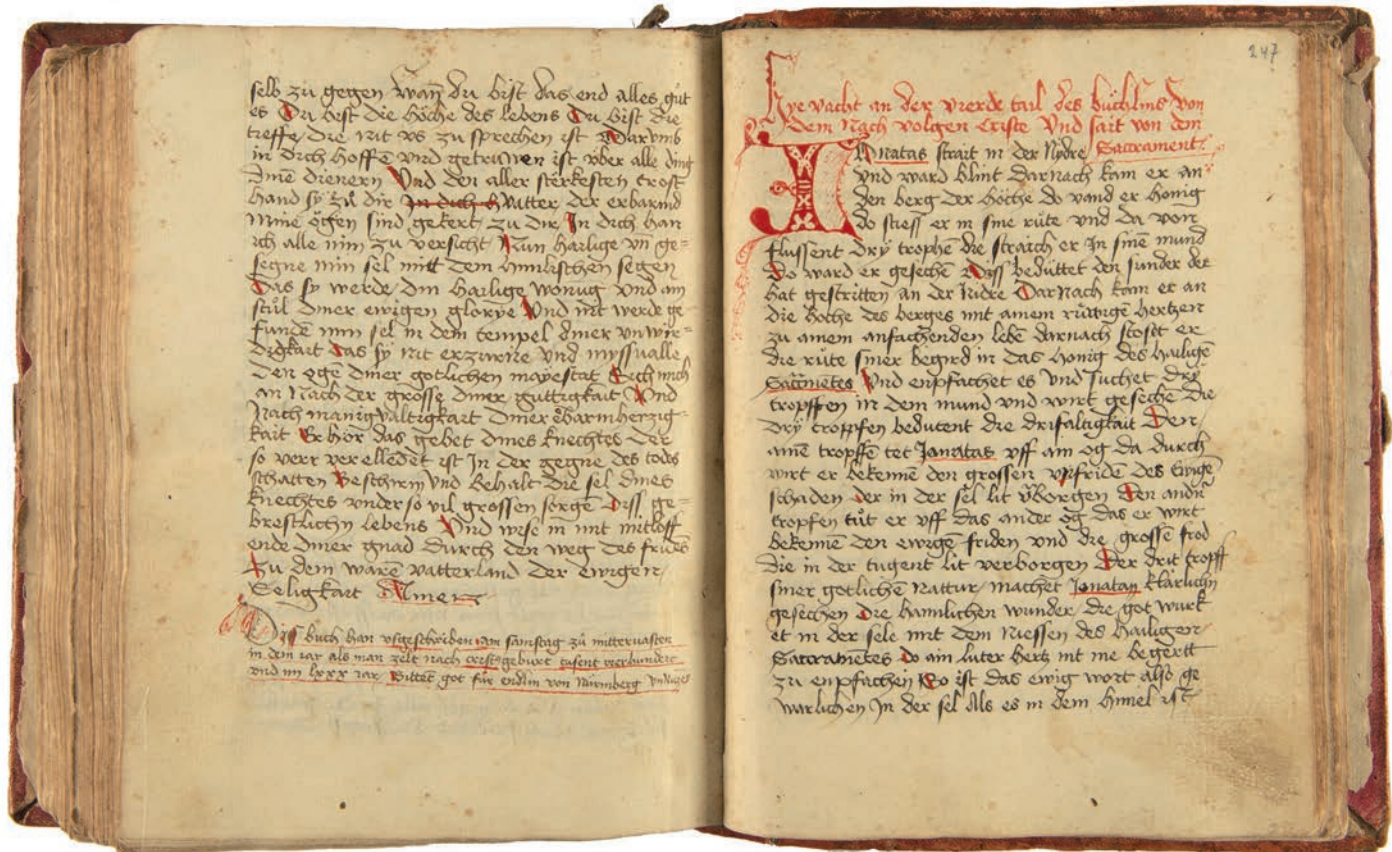 selb zu gegen wan̄ du bist das end alles gůt
es Du bist die höche des lebens Du bist die
treffe die nit vs zu sprechen ist Darvmb
in dich hoffē vnd getruwen ist vber alle ding
dinē dienern Vnd den aller sterkesten trost
hand sy zů dir In dich Vatter der erbarmd
mine ögen sind gekert zu dir In dich han
ich alle min zu versicht Nun hailige vn̄ ge=
segne min sel mitt dem himlischen segen
Das sy werde din hailige wonūg vnd ain
stůl diner ewigen glorye Vnd nit werde ge
fundē min sel in dem tempel diner vn wir=
digkait das sy nit erzürne vnd myssualle
den ogē diner gotlichen mayestat Sich mich
an Nach der grösse diner guttigkait Vnd
Nach manigualtigkait diner ebarmherzig
kait Erhör das gebet dines knechtes der
so verr verellēdet ist In der gegne des todes
schatten Beschirm vnd behalt die sel dines
knechtes vnder so vil grossen sorgē diss ge=
brestlichn̄ lebens Vnd wise in mit
ende diner gnad durch den weg des frides
Zu dem warē vatterland der ewigen
Seligkait Amen
Dis buch han vsgeschriben am samstag zů mitteruasten
in dem iar als man zelt nach cristi geburt tusent vierhundert
vnd im lxxx iar Bittet got für endlin von Nürmberg
247
Hye vacht an der vierde tail des büchlins von
dem Nach volgen Criste Vnd sait von dem
Sacrament
IOnatas strait in der Nydre
Vnd ward blint darnach kam er an
den berg der höche do vand er honig
do stiess er in sine růte vnd da von
flussent dry trophē die straich er In sinē mund
Do ward er gesechē Dyss bedüttet den sunder der
hat gestritten an der Nidre DarNach kom er an
die höche des berges mit ainem rüwigē hertzen
zu ainem anfachenden lebē darnach stosst er
die růte siner begird in das honig des hailigē
Sacrmētes Vnd enpfachet es vnd suchet dry
tropffen in dem mund vnd wirt gesechē Die
dry tropfen bedutent die drifaltigkait Den
ainē tropffē tet Jonatas vff ain og da durch
wirt er bekennē den grossen vnfriden des Ewigē
schaden der in der sel lit vÿborgen Den andn̄
tropfen tůt er vff das ander og das er wirt
bekennē den ewigē friden vnd die grossē frod
die in der tugent lit verborgen Der drit tropff
siner gotlichē Nattur machet Jonatan klarlichn̄
gesechen die haimlichen wunder die got wurk
et in der sele mit dem Niessen des hailigen
Saccramētes do ain luter hertz mit me begertt
zu enpfachen So ist das ewig wort also ge
warlichen In der sel Als es in dem himel ist